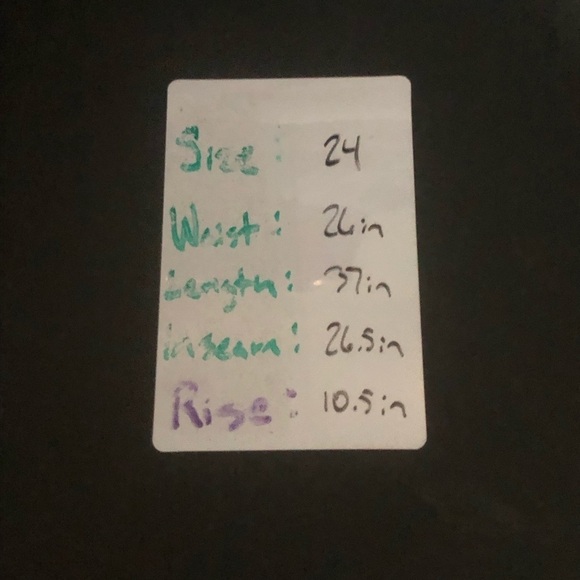 Size: 24
Waist: 26in
Length: 37in
Inseam: 26.5in
Rise: 10.5in